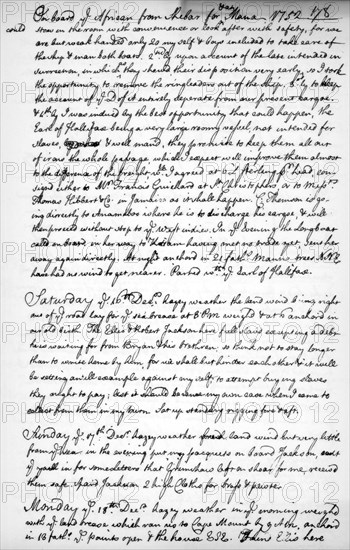 On board yᵉ African from Shebar for Mana 1752 178
could stow in the room with convenience or look after with safety, for we
are but weak handed only 20 my self & boys included to take care of
the ship & man both boats. 2dly upon account of the late intended in-
surrection, in which they shewed their disposition very early, so I took
the opportunity to remove the ringleaders out of the ship. 3ly to keep
the account of yᵉ of it entirely seperate from our present cargoe.
& 4ly I was induced by the best opportunity that could happen, the
Earl of Halifax being a very large roomy vessel, not intended for
slaves, & well mand, they promise to keep them all out
of irons the whole passage, which I expect will improve them almost
to the difference of the freight wch I agreed at Sterling pr head, con-
signed either to Mr Francis Guichard at St Christophers, or to Messrs
Thomas Hibbert & Co in Jamaica as it shall happen. Thomson is go-
ing directly to Anamaboe where he is to discharge his cargoe, & will
then proceed without stop to yᵉ West indies. In yᵉ Evening the Longboat
called on board in her way to having met no trade yet. Sent her
away again directly. At night anchord in 21 fath: Manna trees N.N.E.
have had no wind to get nearer. Parted wth yᵉ Earl of Halifax.
Saturday yᵉ 16th Decr. hazey weather the land wind bring right
out of yᵉ road lay for yᵉ sea breeze at 8 PM weighd & at 6 anchord in
our old birth. The Ellis & Robert Jackson here full slav'd excepting a debt
due waiting for from Bryan & his brethren, so think not to stay longer
than to write home by him for we shall but hinder each other & it will
be setting an ill example against my self, to attempt buying slaves
they ought to pay, lest it should become my own case when I come to
collect from them in my turn. Set up standing rigging fore & aft.
Sunday yᵉ 17th Decr. hazey weather land wind but very little
from yᵉ sea in the evening put my pacquets on board Jackson, sent
yᵉ yaull in for some letters that Greenhaw left on shoar for me, receivd
them safe. Paid Jackson 2 high Cloths for brass & pewter.
Monday yᵉ 18th Decr. hazey weather in yᵉ morning weighd
with yᵉ land breeze which ran us to Cape Mount by 9 AM, anchord
in 13 fath: yᵉ point open & the house ESE. Ellis here